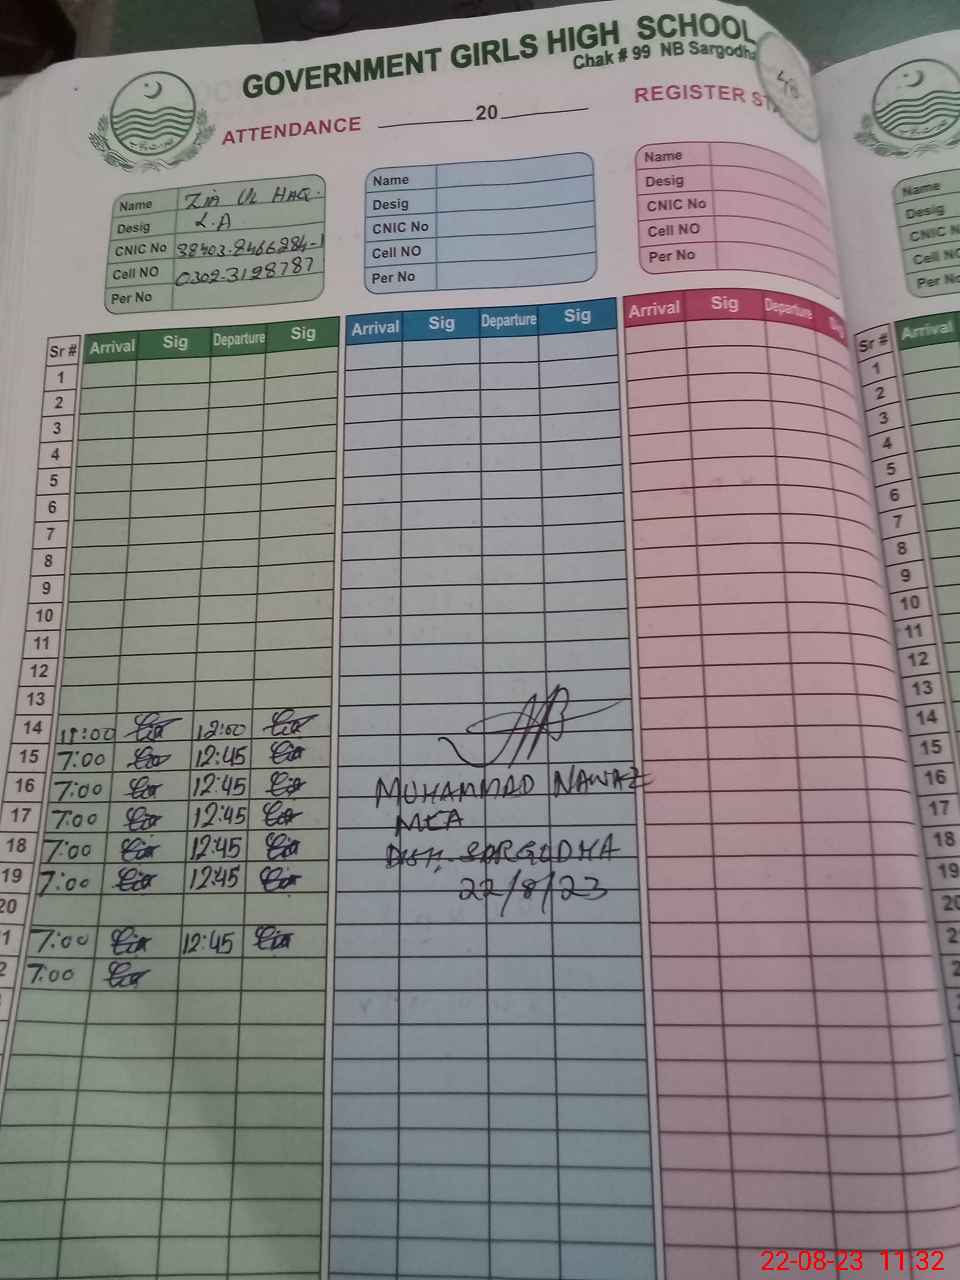 GOVERNMENT GIRLS HIGH SCHOOL
Chak # 99 NB Sargodha
ATTENDANCE ________20________ REGISTER
48
Name Zia Ul Haq.
Desig L.A
CNIC No 38403-8466284-1
Cell NO 0302-3128787
Per No
Name
Desig
CNIC No
Cell NO
Per No
Name
Desig
CNIC No
Cell NO
Per No
Name
Desig
CNIC N
Cell NO
Per No
Sr # Arrival Sig Departure Sig Arrival Sig Departure Sig Arrival Sig Departure Sig Sr # Arrival
1 1
2 2
3 3
4 4
5 5
6 6
7 7
8 8
9 9
10 10
11 11
12 12
13 13
14 11:00 12:00 14
15 7:00 12:45 15
16 7:00 12:45 MUHAMMAD NAWAZ 16
17 7:00 12:45 MEA 17
18 7:00 12:45 Distt. SARGODHA 18
19 7:00 12:45 22/8/23 19
20 20
1 7:00 12:45 2
2 7:00 2
22-08-23 11:32